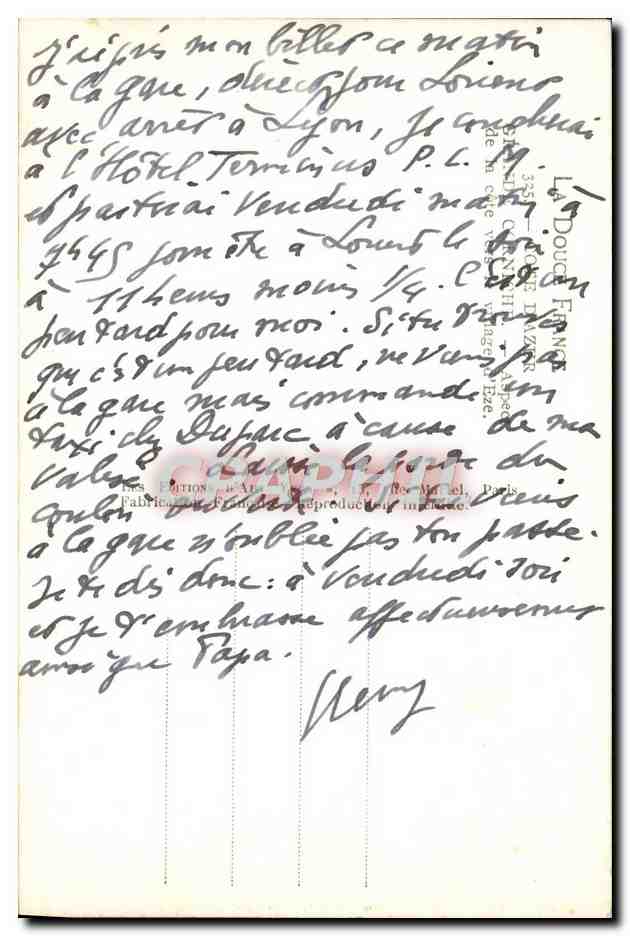 J'ai pris mon billet ce matin
à la gare, direct pour Lorient
avec arrêt à Lyon, je coucherai
à l'Hôtel Terminus P. L. M.
et partirai Vendredi matin à
7h45 pour être à Lorient le soir
à 11 heures moins 1/4. C'est un
peu tard pour moi. Si tu trouves
que c'est un peu tard, ne viens pas
à la gare mais commande un
taxi chez Duparc à cause de ma
valise. Laisse la porte du
à la gare n'oublie pas ton passe.
Je te dis donc : à Vendredi soir
et je t'embrasse affectueusement
ainsi que Papa.
LA DOUCE FRANCE
325 — CÔTE D'AZUR
GRANDE CORNICHE. — Aspect
de la côte vers le village d'Eze.
LES ÉDITIONS D'ART Paris
Fabrication Française - Reproduction interdite.
CPAPHIL